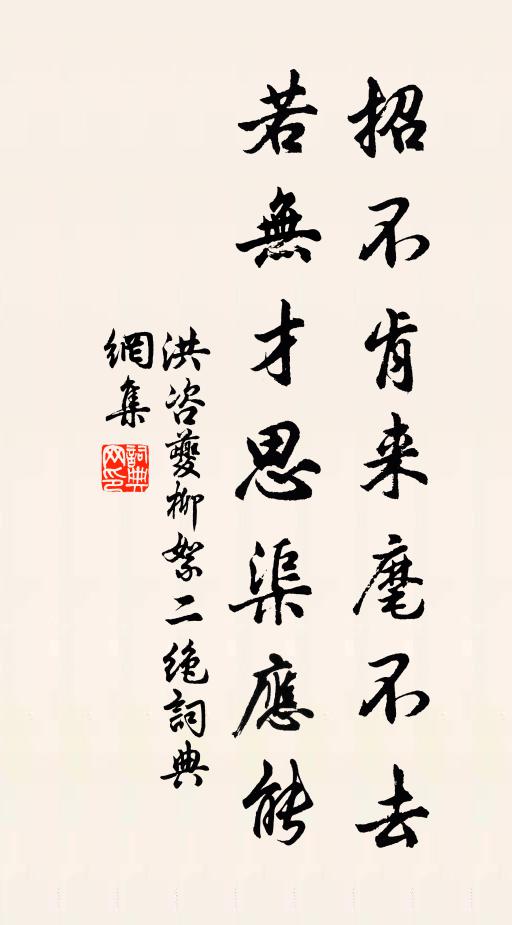 招不肯来麾不去
若無才思渠應能
洪咨夔柳絮二絶詞典
網集
詞典網印